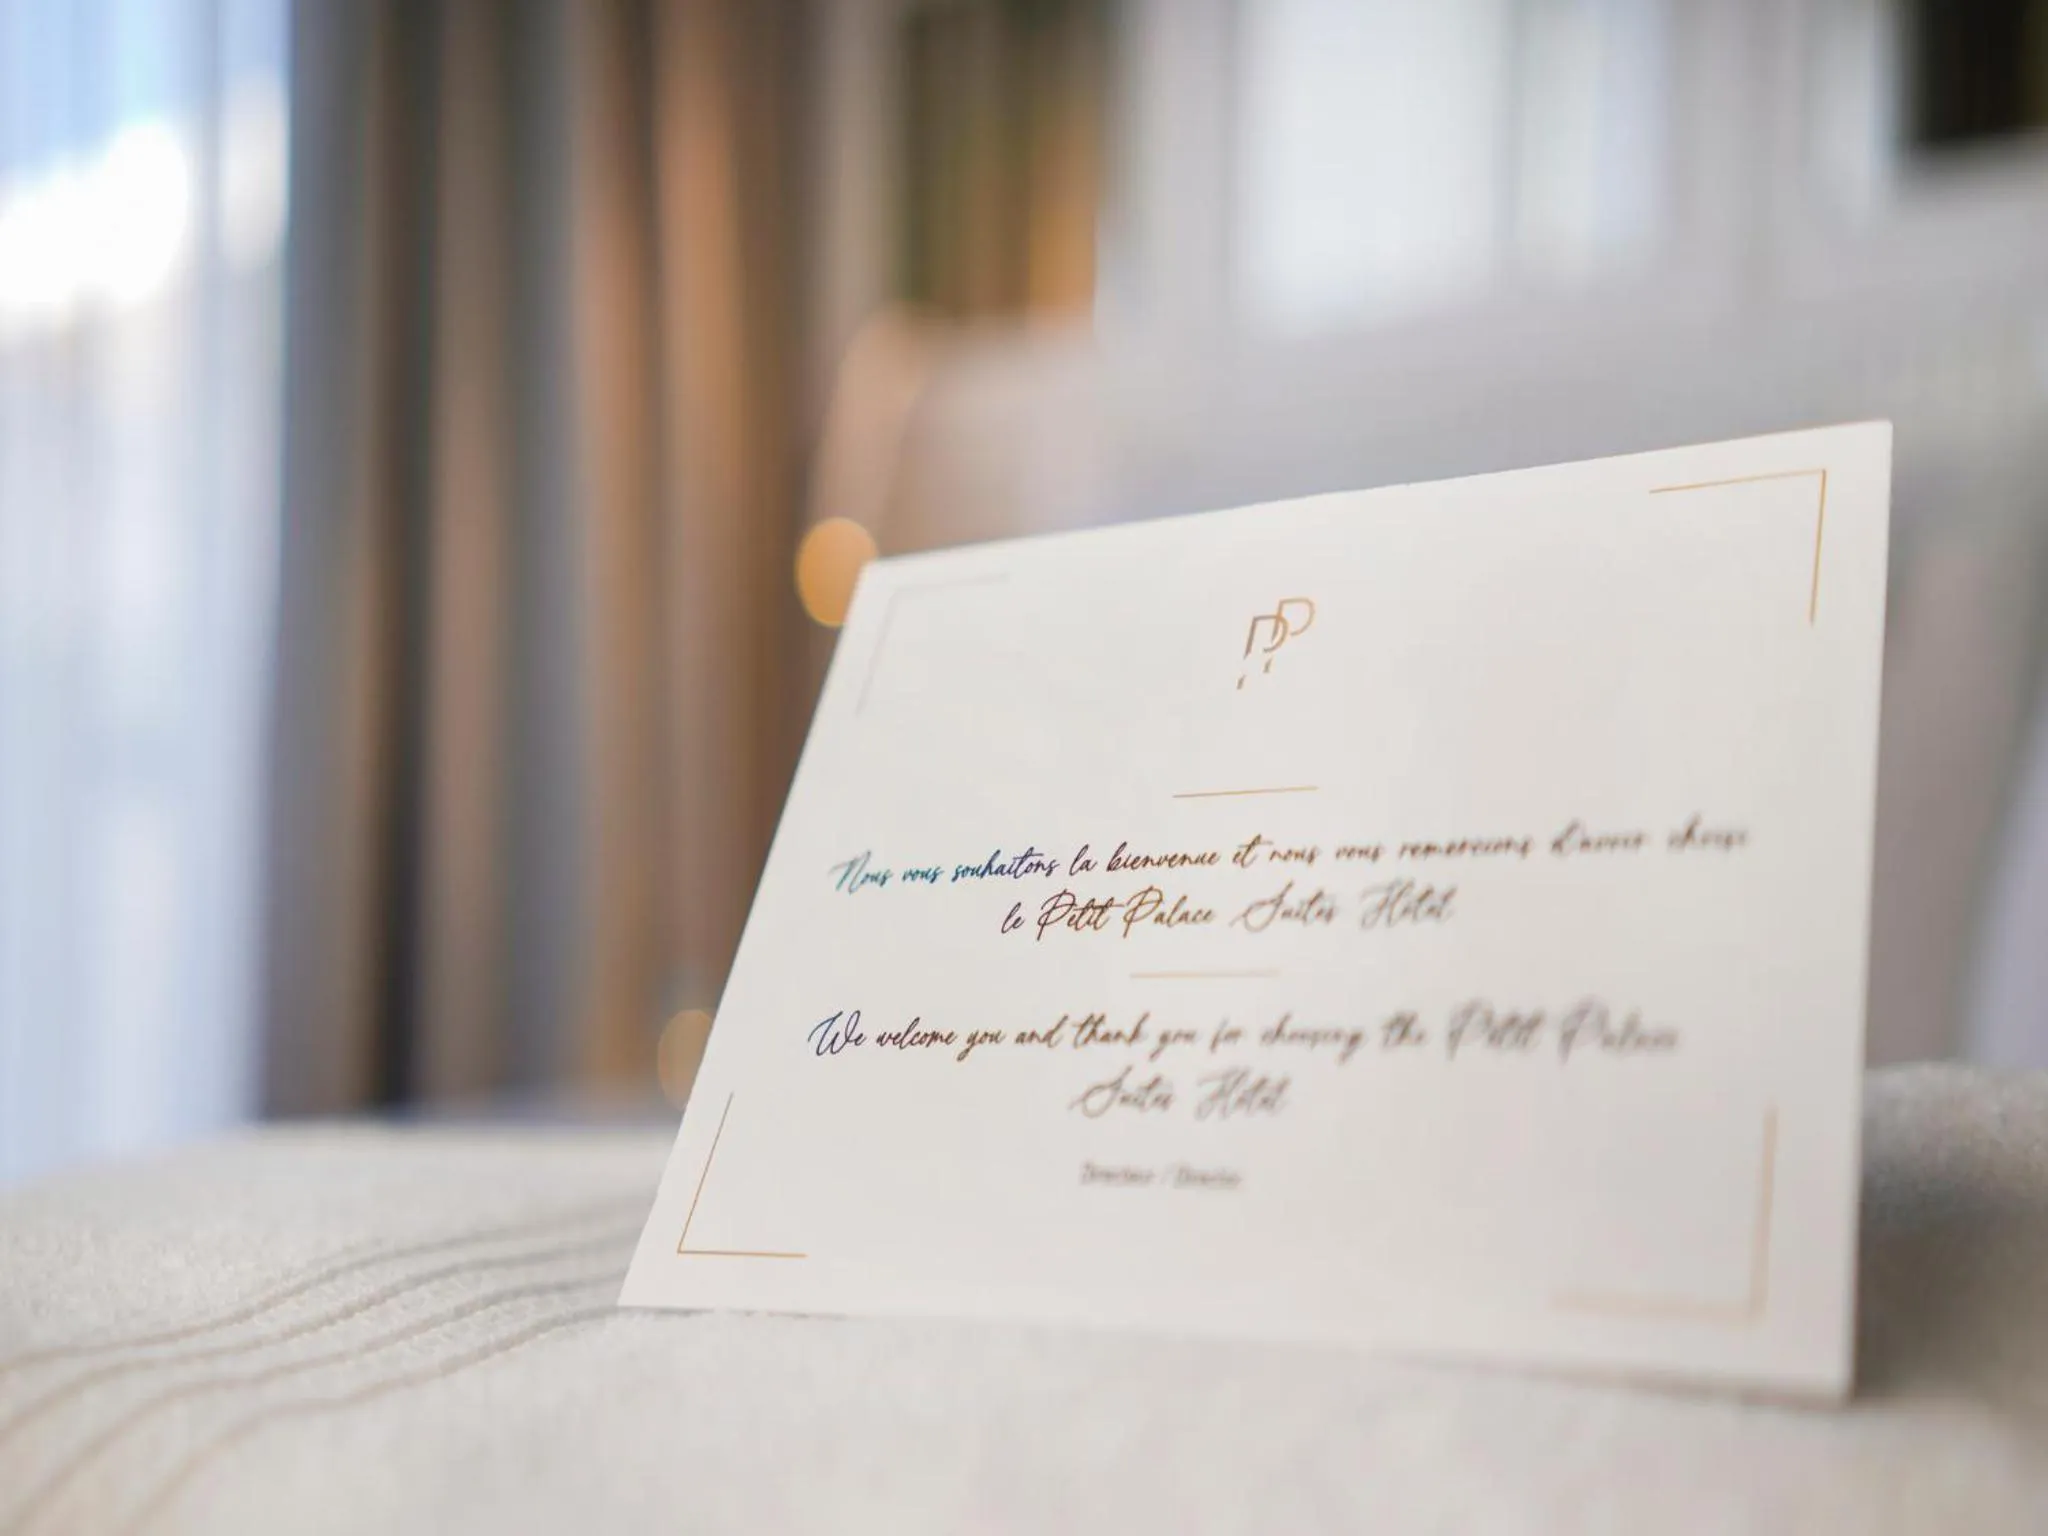 PP
Nous vous souhaitons la bienvenue et nous vous remercions d'avoir choisi
le Petit Palace Suites Hôtel
We welcome you and thank you for choosing the Petit Palace
Suites Hôtel
Directeur / Director